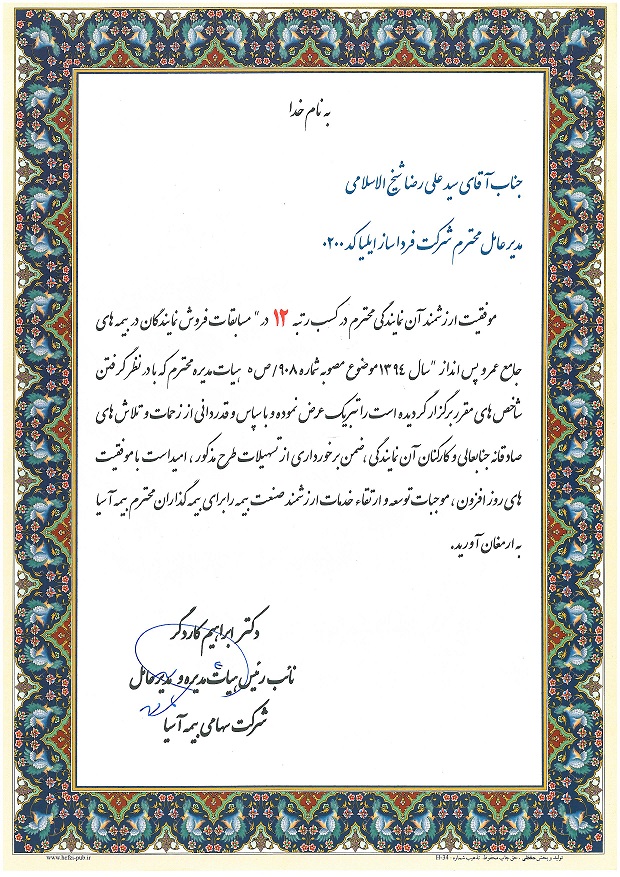 به نام خدا
جناب آقای سید علی رضا شیخ الاسلامی
مدیر عامل محترم شرکت فردا ساز ایلیا کد ۰۲۰۰
موفقیت ارزشمند آن نمایندگی محترم در کسب رتبه ۱۲ در " مسابقات فروش نمایندگان در بیمه های
جامع عمر و پس انداز " سال ۱۳۹۴ موضوع مصوبه شماره ۹۰۸/ص ۵ هیات مدیره محترم که با در نظر گرفتن
شاخص های مقرر برگزار گردیده است را تبریک عرض نموده و با سپاس و قدردانی از زحمات و تلاش های
صادقانه جنابعالی و کارکنان آن نمایندگی ، ضمن برخورداری از تسهیلات طرح مذکور ، امید است با موفقیت
های روز افزون ، موجبات توسعه و ارتقاء خدمات ارزشمند صنعت بیمه را برای بیمه گذاران محترم بیمه آسیا
به ارمغان آورید.
دکتر ابراهیم کاردگر
نائب رئیس هیات مدیره و مدیر عامل
شرکت سهامی بیمه آسیا
تولید و پخش حفظی . حق چاپ محفوظ. تذهیب شماره : H-34
www.hefzi-pub.ir